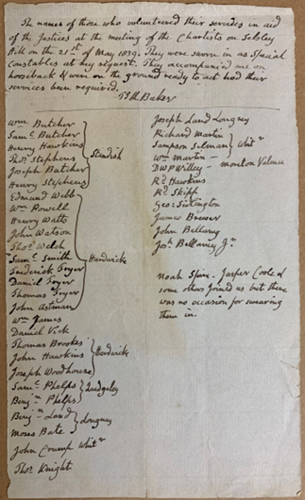 The names of those who volunteered their services in aid
of the Justices at the meeting of the Chartists on Selsley
Hill on the 21st of May 1839. They were sworn in as Special
Constables at my request. They accompanied me on
horseback & were on the ground ready to act had their
services been required.
T. H. Baker
Wm Butcher
Saml Butcher
Henry Hawkins
Thos Stephens
Standish
Joseph Butcher
Henry Stephens
Edmund Webb
Wm Powell
Henry Watts
John Watson
Thos Welch
Saml Smith
Hardwicke
Frederick Fryer
Daniel Fryer
Thomas Fryer
John Astman
Wm James
Daniel Vick
Thomas Brookes
John Hawkins
Hardwicke
Joseph Woodhouse
Saml Phelps
Quedgeley
Benjn Phelps
Benjn Land
Longney
Moses Bate
John Crump Whitr
Thos Knight
Joseph Land Longney
Richard Martin
Sampson Selman
Whitr
Wm Martin
D W P Willey - Moreton Valence
Rd Hawkins
Rd Skipp
Geo:
James Brewer
John Bellamy
Jos. Bellamy Jr
Noah Spire. Jasper Coole &
some others joined us but there
was no occasion for swearing
them in.